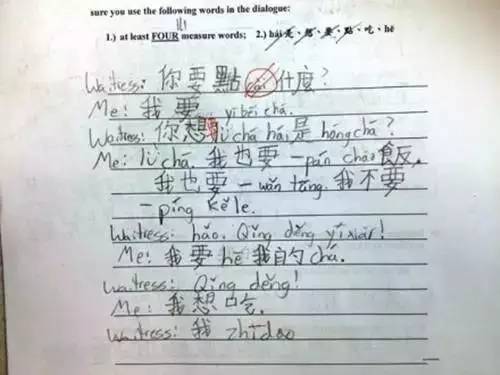 sure you use the following words in the dialogue:
1.) at least FOUR measure words; 2.) hái 是、想、要、點、吃、hē
Waitress: 你要點 cài 什麼?
Me: 我要 yìbēi chá.
Waitress: 你想要 lǜchá hái是 hóngchá?
Me: lǜ chá. 我也要一pán chǎo飯,
我也要一wǎn tāng. 我不要
一píng kělè.
Waitress: hǎo. Qǐng děng yíxiàr!
Me: 我要 hē 我的 chá.
Waitress: Qǐng děng!
Me: 我想吃.
Waitress: 我 zhīdao